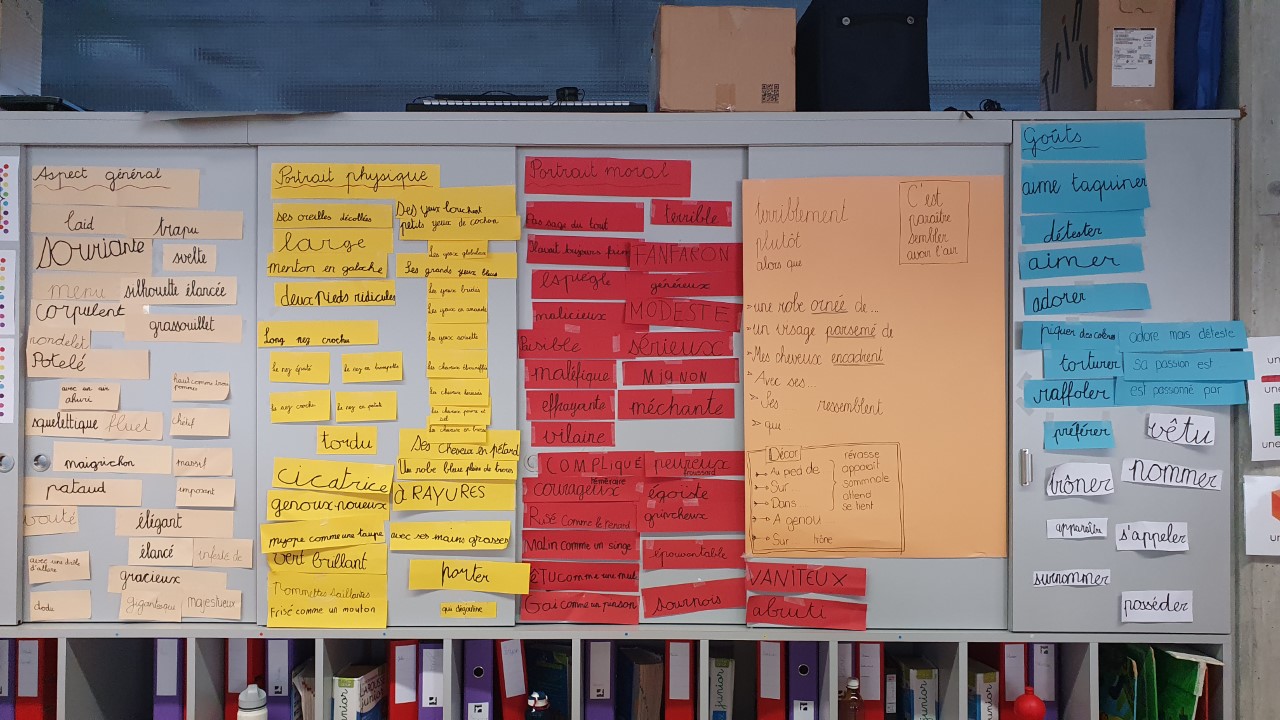 Aspect général
laid
trapu
souriante
svelte
menu
silhouette élancée
corpulent
grassouillet
rondelet
Potelé
avec un air ahuri
haut comme trois pommes
squelettique
fluet
chétif
maigrichon
massif
pataud
imposant
voûté
élégant
élancé
avec une drôle d'allure
gracieux
dodu
gigantesque
majestueux
Portrait physique
ses oreilles décollées
large
menton en galoche
deux Pieds ridicules
Long nez crochu
le nez épaté
le nez en trompette
le nez crochu
le nez en patate
tordu
cicatrice
genoux noueux
myope comme une taupe
vert brillant
Pommettes saillantes
Frisé comme un mouton
Des yeux louchent
petits yeux de cochon
les yeux globuleux
Les grands yeux bleus
les yeux bridés
les yeux en amande
Ses cheveux en pétard
Une robe bleue pleine de trous
à RAYURES
avec ses mains grasses
porter
qui dégouline
Portrait moral
Pas sage du tout
terrible
FANFARON
espiègle
généreux
malicieux
MODESTE
sérieux
maléfique
MIGNON
effrayante
méchante
vilaine
COMPLIQUÉ
peureux
froussard
téméraire
courageux
égoïste
grincheux
Rusé comme le renard
Malin comme un singe
épouvantable
têtu comme une mule
Gai comme un pinson
sournois
VANITEUX
abruti
terriblement
plutôt
alors que
C'est
paraître
sembler
avoir l'air
une robe ornée de...
un visage parsemé de
Mes cheveux encadrent
Avec ses...
Ses ressemblent
qui
Décor
Au pied de
Sur
Dans
A genou
Sur trône
rêvasse
apparaît
somnole
attend
se tient
Goûts
aime taquiner
détester
aimer
adorer
piquer des colères
adore mais déteste
torturer
sa passion est
raffoler
est passionné par
préférer
vêtu
trôner
nommer
apparaître
s'appeler
surnommer
posséder
junior
junior